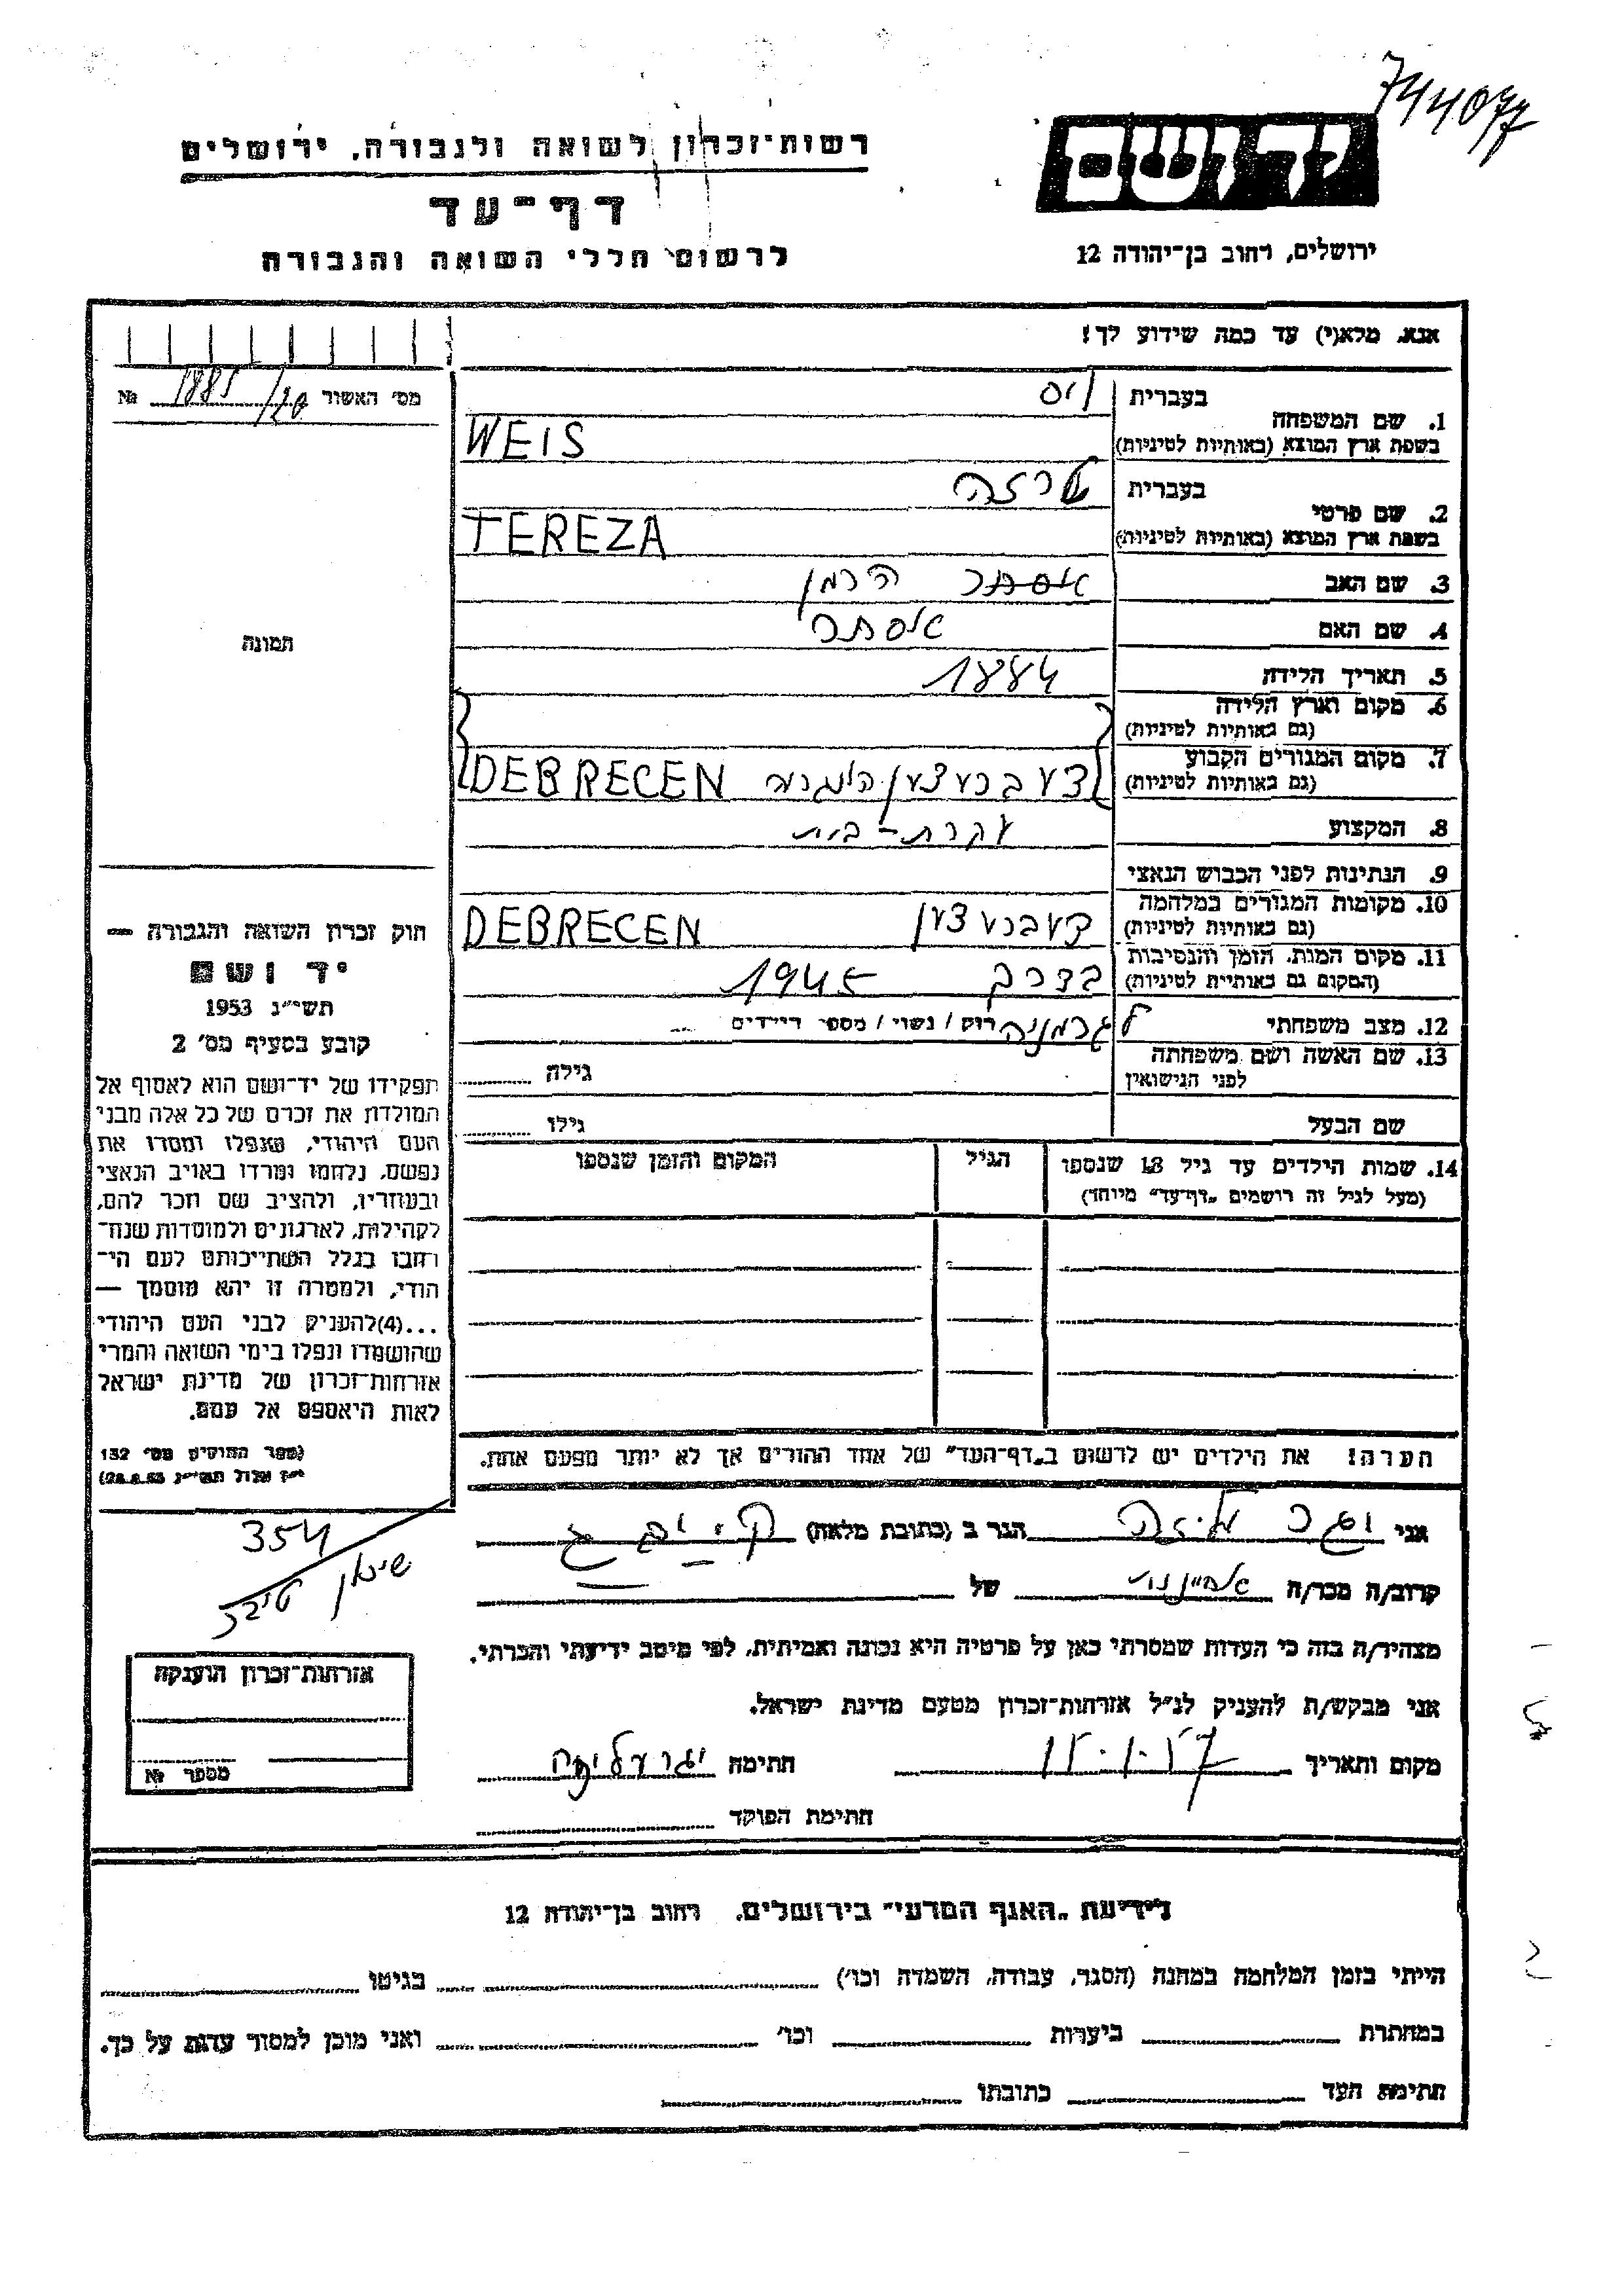 744077
ידושם
ירושלים, רחוב בן־יהודה 12
רשות־זכרון לשואה ולגבורה, ירושלים
דף־עד
לרשום חללי השואה והגבורה
אנא, מלא(י) עד כמה שידוע לך!
מס' האשור 1885/20 №
1. שם המשפחה
בעברית ויס
בשפת ארץ המוצא (באותיות לטיניות) WEIS
2. שם פרטי
בעברית טרזה
בשפת ארץ המוצא (באותיות לטיניות) TEREZA
3. שם האב אסתר הרמן
4. שם האם אסתר
5. תאריך הלידה 1884
6. מקום וארץ הלידה
(גם באותיות לטיניות)
7. מקום המגורים הקבוע
(גם באותיות לטיניות) DEBRECEN
8. המקצוע עקרת-בית
9. הנתינות לפני הכבוש הנאצי
10. מקומות המגורים במלחמה
(גם באותיות לטיניות) דעברעצען DEBRECEN
11. מקום המות, הזמן והנסיבות
(המקום גם באותיות לטיניות) בדרך 1945
לגרמניה
12. מצב משפחתי רוק / נשוי / מספר הילדים
13. שם האשה ושם משפחתה
לפני הנישואין גילה
שם הבעל גילו
14. שמות הילדים עד גיל 18 שנספו הגיל המקום והזמן שנספו
(מעל לגיל זה רושמים "דף־עד" מיוחד)
הערה! את הילדים יש לרשום ב"דף־העד" של אחד ההורים אך לא יותר מפעם אחת.
תמונה
חוק זכרון השואה והגבורה —
יד ושם
תשי"ג 1953
קובע בסעיף מס' 2
תפקידו של יד־ושם הוא לאסוף אל
המולדת את זכרם של כל אלה מבני
העם היהודי, שנפלו ומסרו את
נפשם, נלחמו ומרדו באויב הנאצי
ובעוזריו, ולהציב שם וזכר להם,
לקהילות, לארגונים ולמוסדות שנח־
רבו בגלל השתייכותם לעם הי־
הודי, ולמטרה זו יהא מוסמך —
...(4) להעניק לבני העם היהודי
שהושמדו ונפלו בימי השואה והמרי
אזרחות־זכרון של מדינת ישראל
לאות היאספם אל עמם.
(ספר החוקים מס' 132
י"ז אלול תשי"ג 28.8.53)
354
אני עליזה הגר ב (כתובת מלאה)
קרוב/ה מכר/ה של
מצהיר/ה בזה כי העדות שמסרתי כאן על פרטיה היא נכונה ואמיתית, לפי מיטב ידיעתי והכרתי.
אני מבקש/ת להעניק לנ"ל אזרחות־זכרון מטעם מדינת ישראל.
מקום ותאריך חתימה
חתימת הפוקד
אזרחות־זכרון הוענקה
מספר №
לידיעת "האגף המדעי" בירושלים, רחוב בן־יהודה 12
הייתי בזמן המלחמה במחנה (הסגר, עבודה, השמדה וכו') בגיטו
במחתרת ביערות וכו' ואני מוכן למסור עדות על כך.
חתימת העד כתובתו